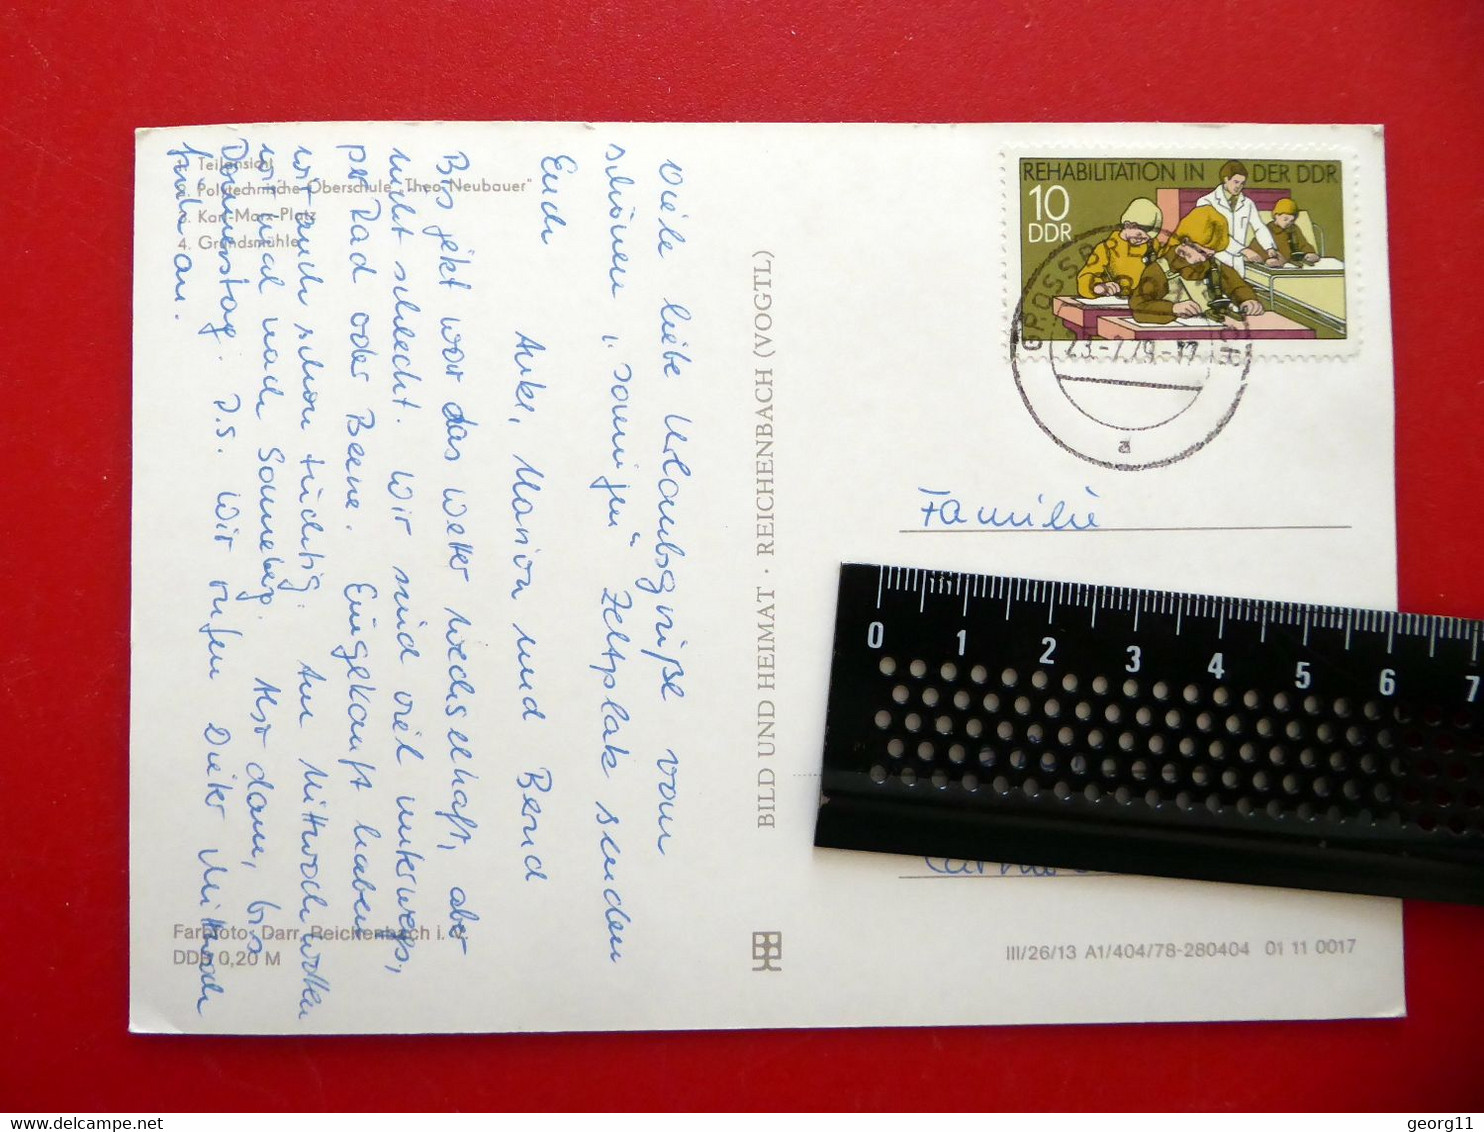 1. Teilansicht
2. Polytechnische Oberschule „Theo Neubauer"
3. Karl-Marx-Platz
4. Grundsmühle
Viele liebe Urlaubsgrüße vom
schönen „sonnigen" Zeltplatz senden
Euch
Anke, Marion und Bernd
Bis jetzt war das Wetter wechselhaft, aber
nicht schlecht. Wir sind viel unterwegs,
per Rad oder Beene. Eingekauft haben
wir auch schon tüchtig. Am Mittwoch wollen
wir mal nach Sonneberg. Also dann, bis
Donnerstag. P.S. Wir rufen Dieter Mittwoch
früh an.
Farbfoto: Darr, Reichenbach i. V.
DDB 0,20 M
BILD UND HEIMAT · REICHENBACH (VOGTL)
REHABILITATION IN DER DDR
10
DDR
23.-7.79.-17
a
Familie
0 1 2 3 4 5 6 7
III/26/13 A1/404/78-280404 01 11 0017
georg11